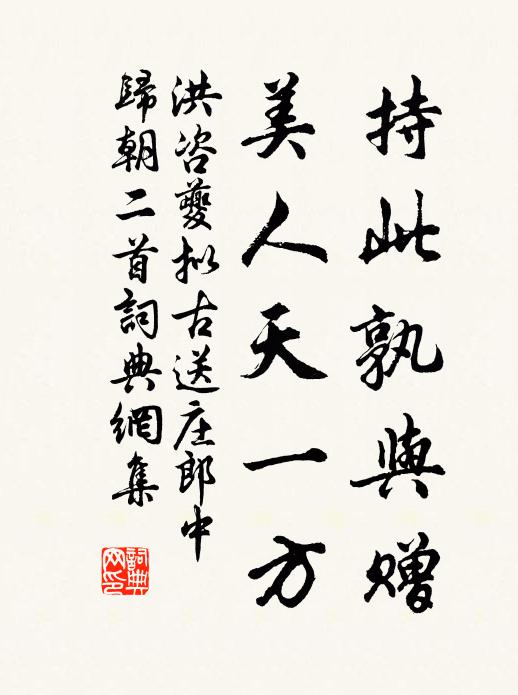 持此孰與赠
美人天一方
洪咨夔拟古送庄郎中
歸朝二首詞典網集
詞典
网印